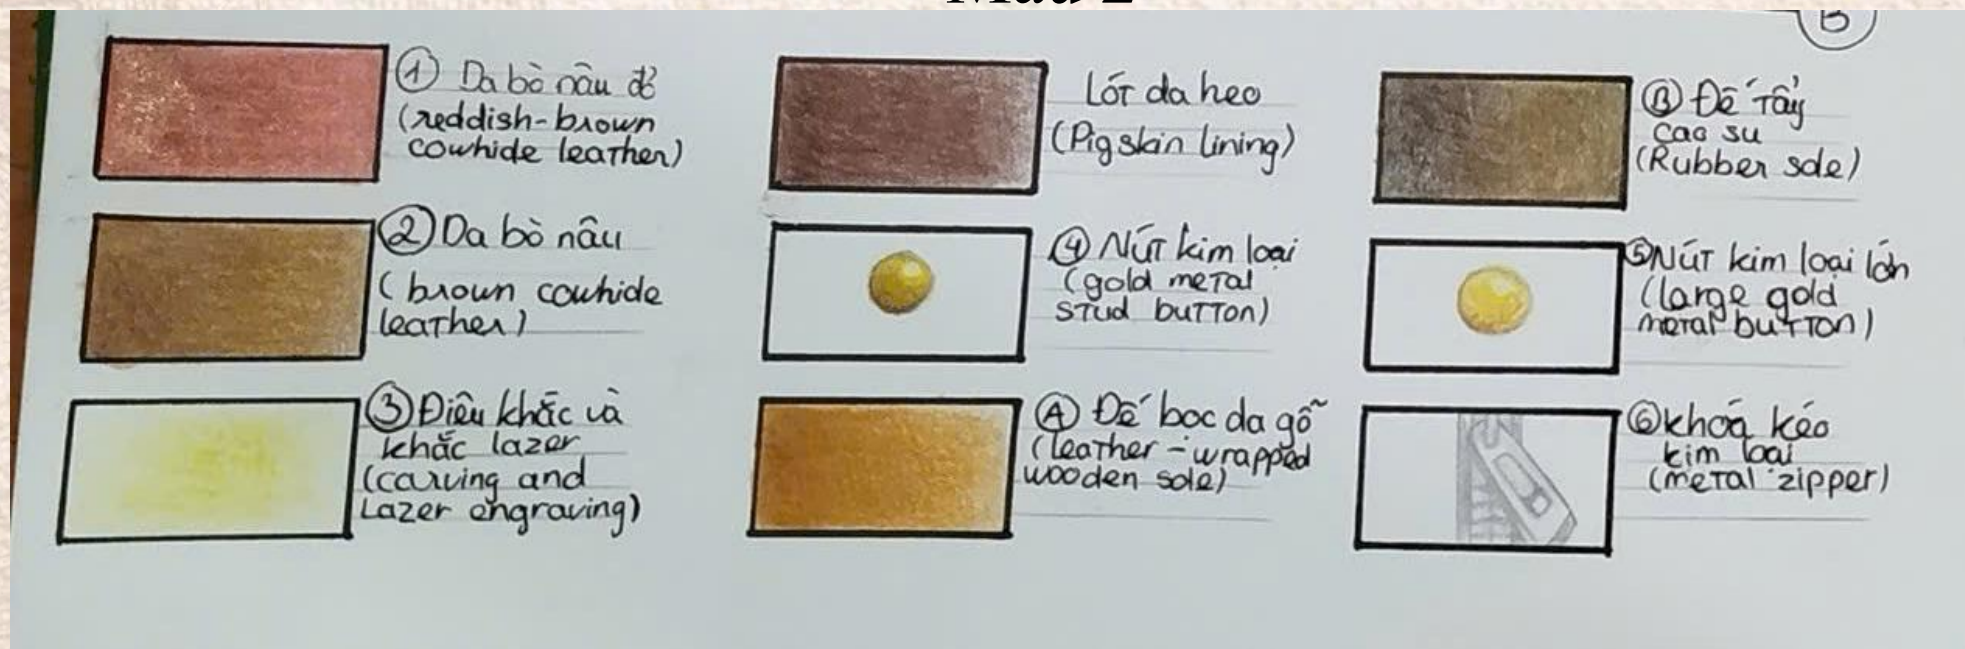 ① Da bò nâu đỏ
(reddish-brown
cowhide leather)
② Da bò nâu
(brown cowhide
leather)
③ Điêu khắc và
khắc lazer
(carving and
Lazer engraving)
Lót da heo
(Pig skin lining)
④ Nút kim loại
(gold metal
stud button)
Ⓐ Đế bọc da gỗ
(leather-wrapped
wooden sole)
B
Ⓑ Đế tẩy
cao su
(Rubber sole)
⑤ Nút kim loại lớn
(large gold
metal button)
⑥ khoá kéo
kim loại
(metal zipper)